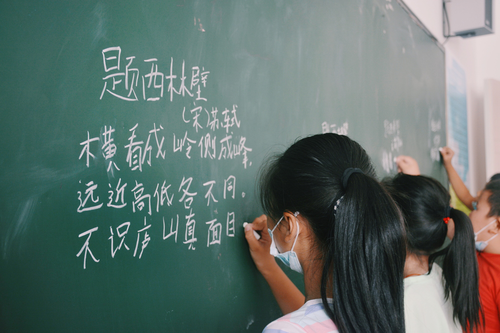 题西林壁
(宋)苏轼
横看成岭侧成峰,
远近高低各不同.
不识庐山真面目